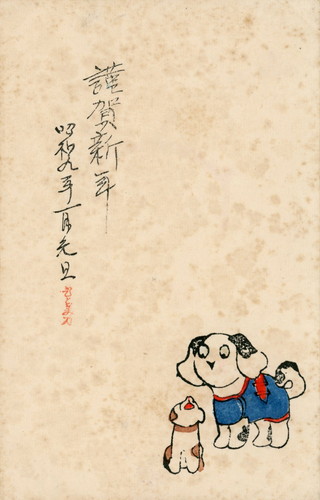 謹賀新年
昭和九年一月元旦